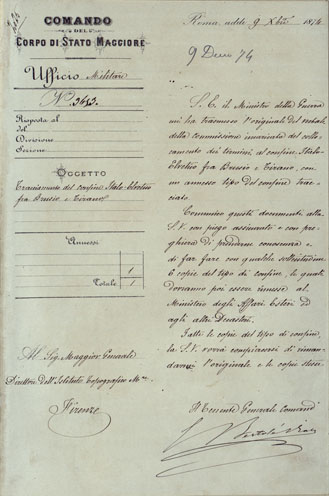 COMANDO
DEL
CORPO DI STATO MAGGIORE
Ufficio Militare
N.° 3653
Risposta al
del
Divisione
Sezione
OGGETTO
Tracciamento del confine Italo-Elvetico
fra Brusio e Tirano
Annessi
1
Totale 1
Al Sig. Maggior Generale
Direttore dell'Istituto Topografico M.re
Firenze
Roma, addì 9 Xbre 1874
9 Dicem 74
S. E. il Ministro della Guerra
mi ha trasmesso l'originale del verbale
della Commissione incaricata del collo-
camento dei termini, al confine Italo-
Elvetico fra Brusio e Tirano, con
un annesso tipo del confine trac-
ciato.
Comunico questi documenti alla
S. V. con pregheira di prenderne conoscenza e
di far fare con qualche sollecitudine
6 copie del tipo di confine, le quali
dovranno poi essere rimesse al
Ministero degli Affari Esteri ed
agli altri Dicasteri.
Fatte le copie del tipo di confine,
la S. V. vorrà compiacersi di riman-
darmi l'originale e le copie stesse.
Il Tenente Generale Comand.